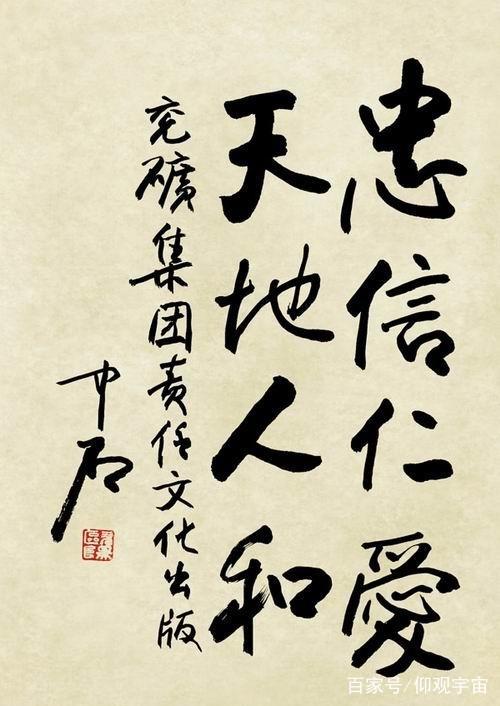 忠信仁愛
天地人和
兖礦集团责任文化出版
中石
百家号/仰观宇宙